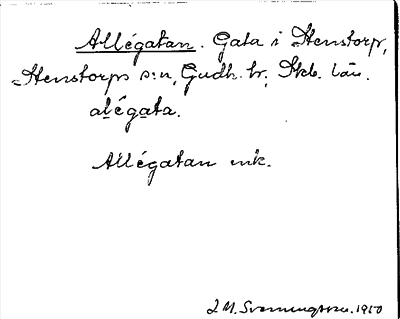 Allégatan. Gata i Stenstorp,
Stenstorps s:n, Gudh. hr, Skb. län.
alégata.
Allégatan mk.
I M. 1950